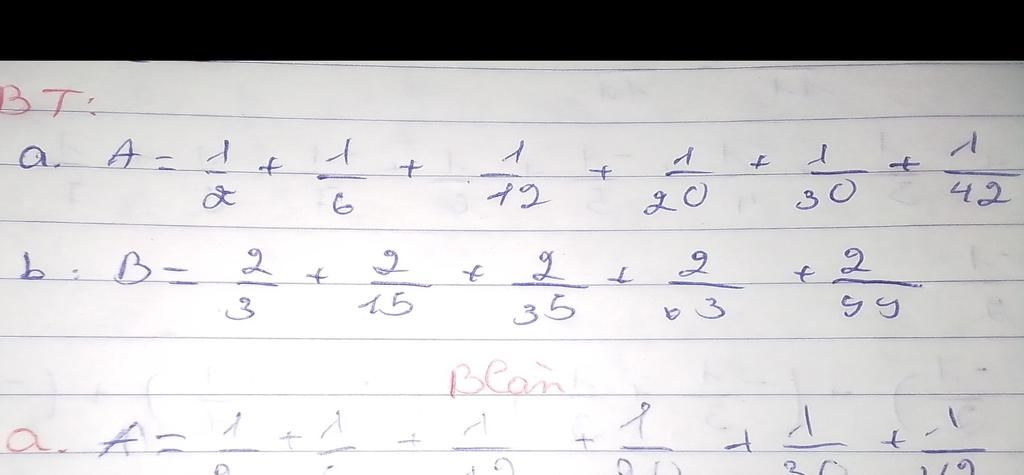 BT:
a. A = 1/2 + 1/6 + 1/12 + 1/20 + 1/30 + 1/42
b: B = 2/3 + 2/15 + 2/35 + 2/63 + 2/99
a. A = 1 + 1 + 1 + 1 + 1 + 1